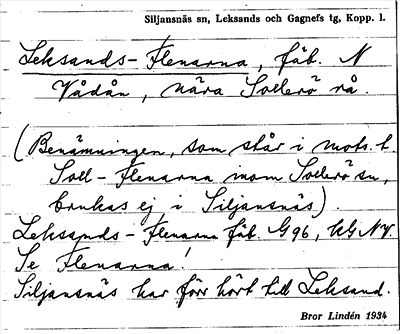 Siljansnäs sn, Leksands och Gagnefs tg, Kopp. l.
Leksands-Flenarna, fäb. N
Vådån, nära Sollerö rå.
(Benämningen, som står i mots. t.
Soll-Flenarna inom Sollerö sn,
brukas ej i Siljansnäs).
Leksands-Flenarna fäb. G96, kG NV.
Se Flenarna!
Siljansnäs har förr hört till Leksand.
Bror Lindén 1934